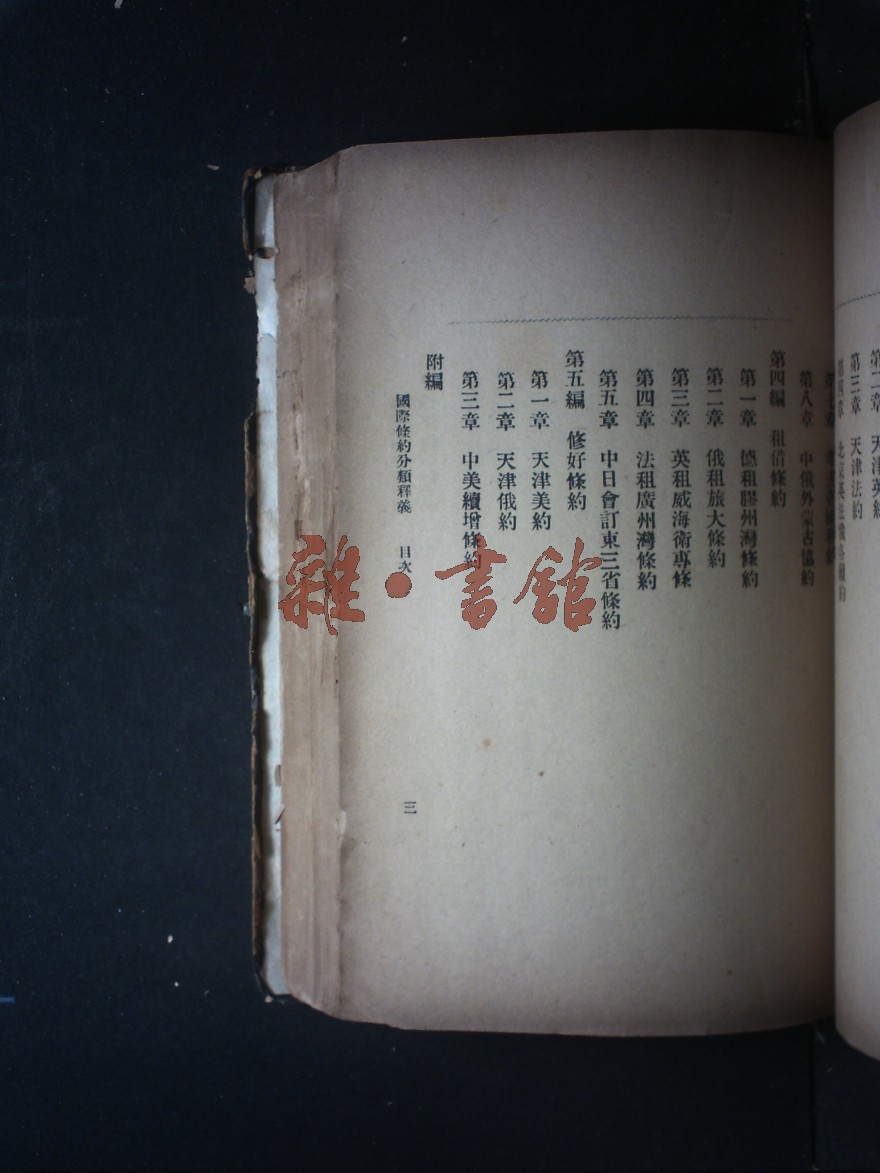 第二章　天津英約
第三章　天津法約
第八章　中俄外蒙古協約
第四編　租借條約
第一章　德租膠州灣條約
第二章　俄租旅大條約
第三章　英租威海衛專條
第四章　法租廣州灣條約
第五章　中日會訂東三省條約
第五編　修好條約
第一章　天津美約
第二章　天津俄約
第三章　中美續增條約
附編
國際條約分類釋義　目次
三
雜·書館